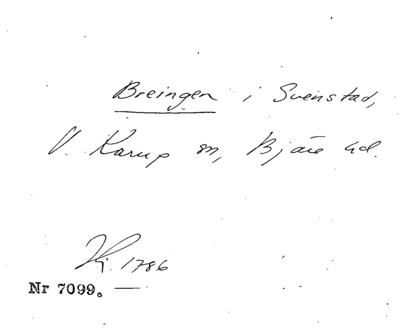 Breingen i Svenstad,
V. Karup sn, Bjäre hd.
Kj. 1786
Nr 7099. —